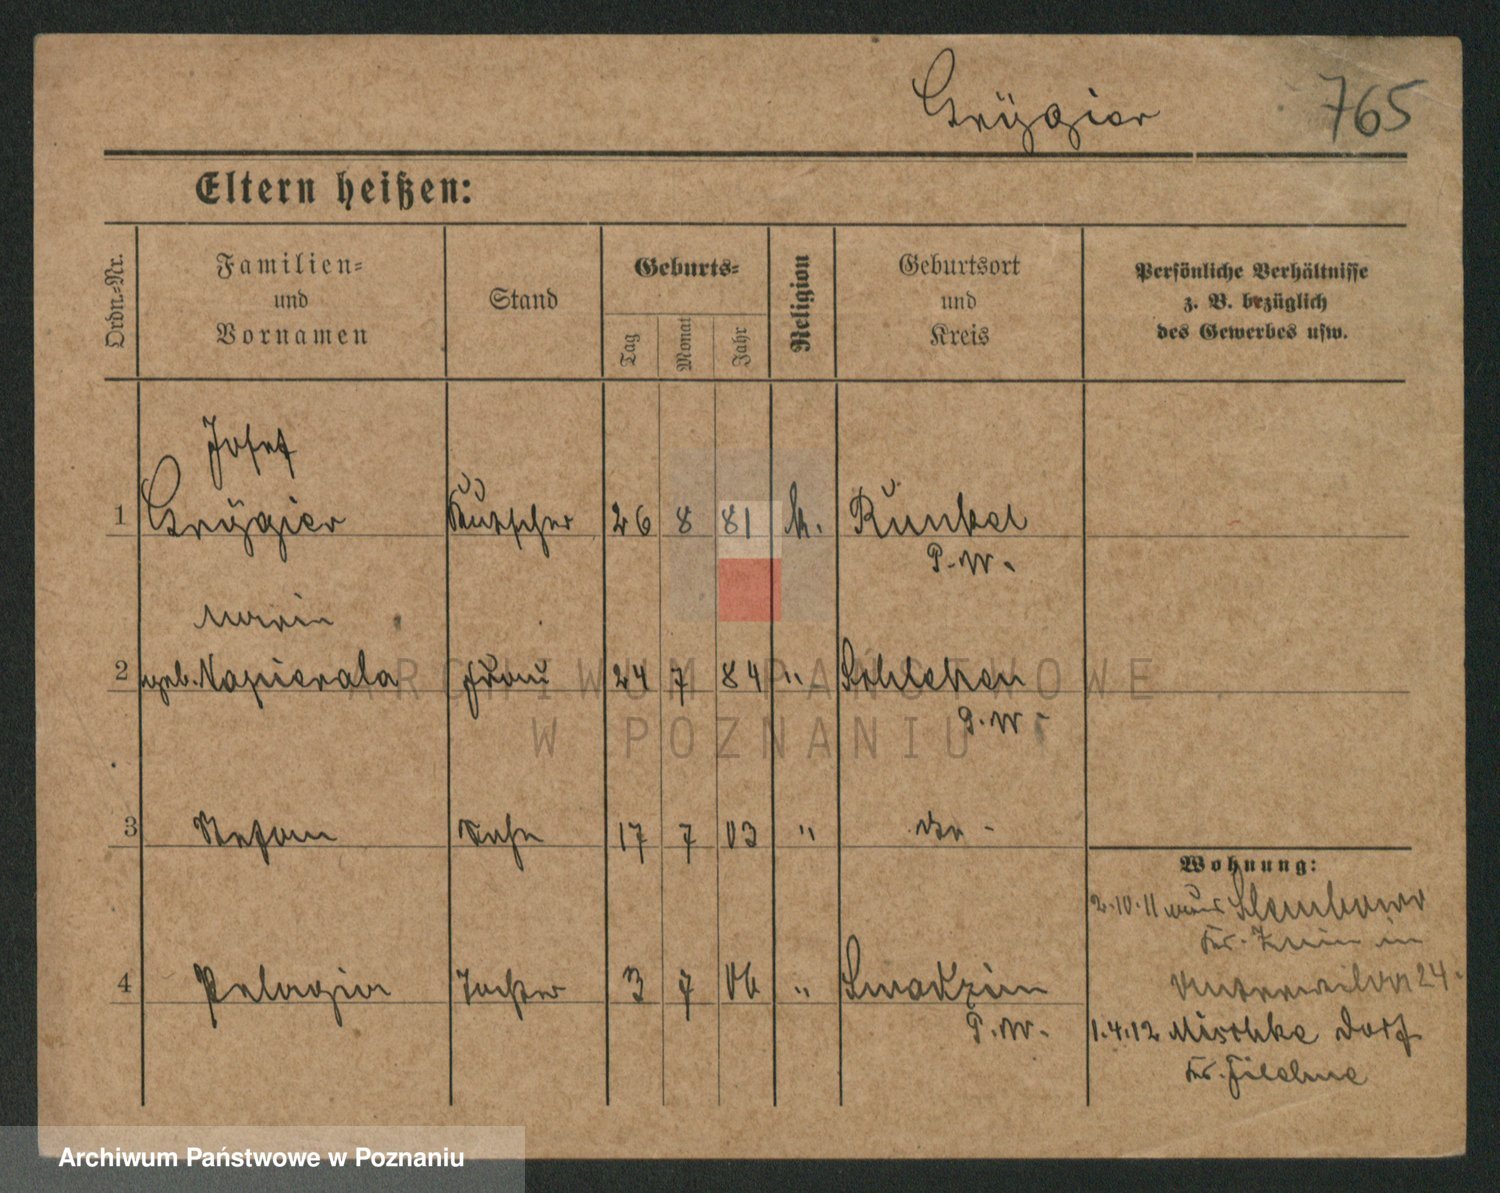 Grüzgier 765
Eltern heißen:
Ordn.-Nr.
Familien-
und
Vornamen
Stand
Geburts-
Tag
Monat
Jahr
Religion
Geburtsort
und
Kreis
Persönliche Verhältnisse
z. B. bezüglich
des Gewerbes usw.
Josef
1 Kutscher 26 8 81 k. Runkel
P. W.
Maria
2 geb. Napierala Frau 24 7 84 " Schleben
P. W.
3 Stefan Sohn 17 7 03 "
Wohnung:
2.10.11 aus
Kr. Znin in
4 Pelagia Tochter 3 7 06 "
Unterwilda 24.
P. W.
1.4.12 Mischke Dorf
Kr. Filehne
ARCHIWUM PAŃSTWOWE
W POZNANIU
Archiwum Państwowe w Poznaniu